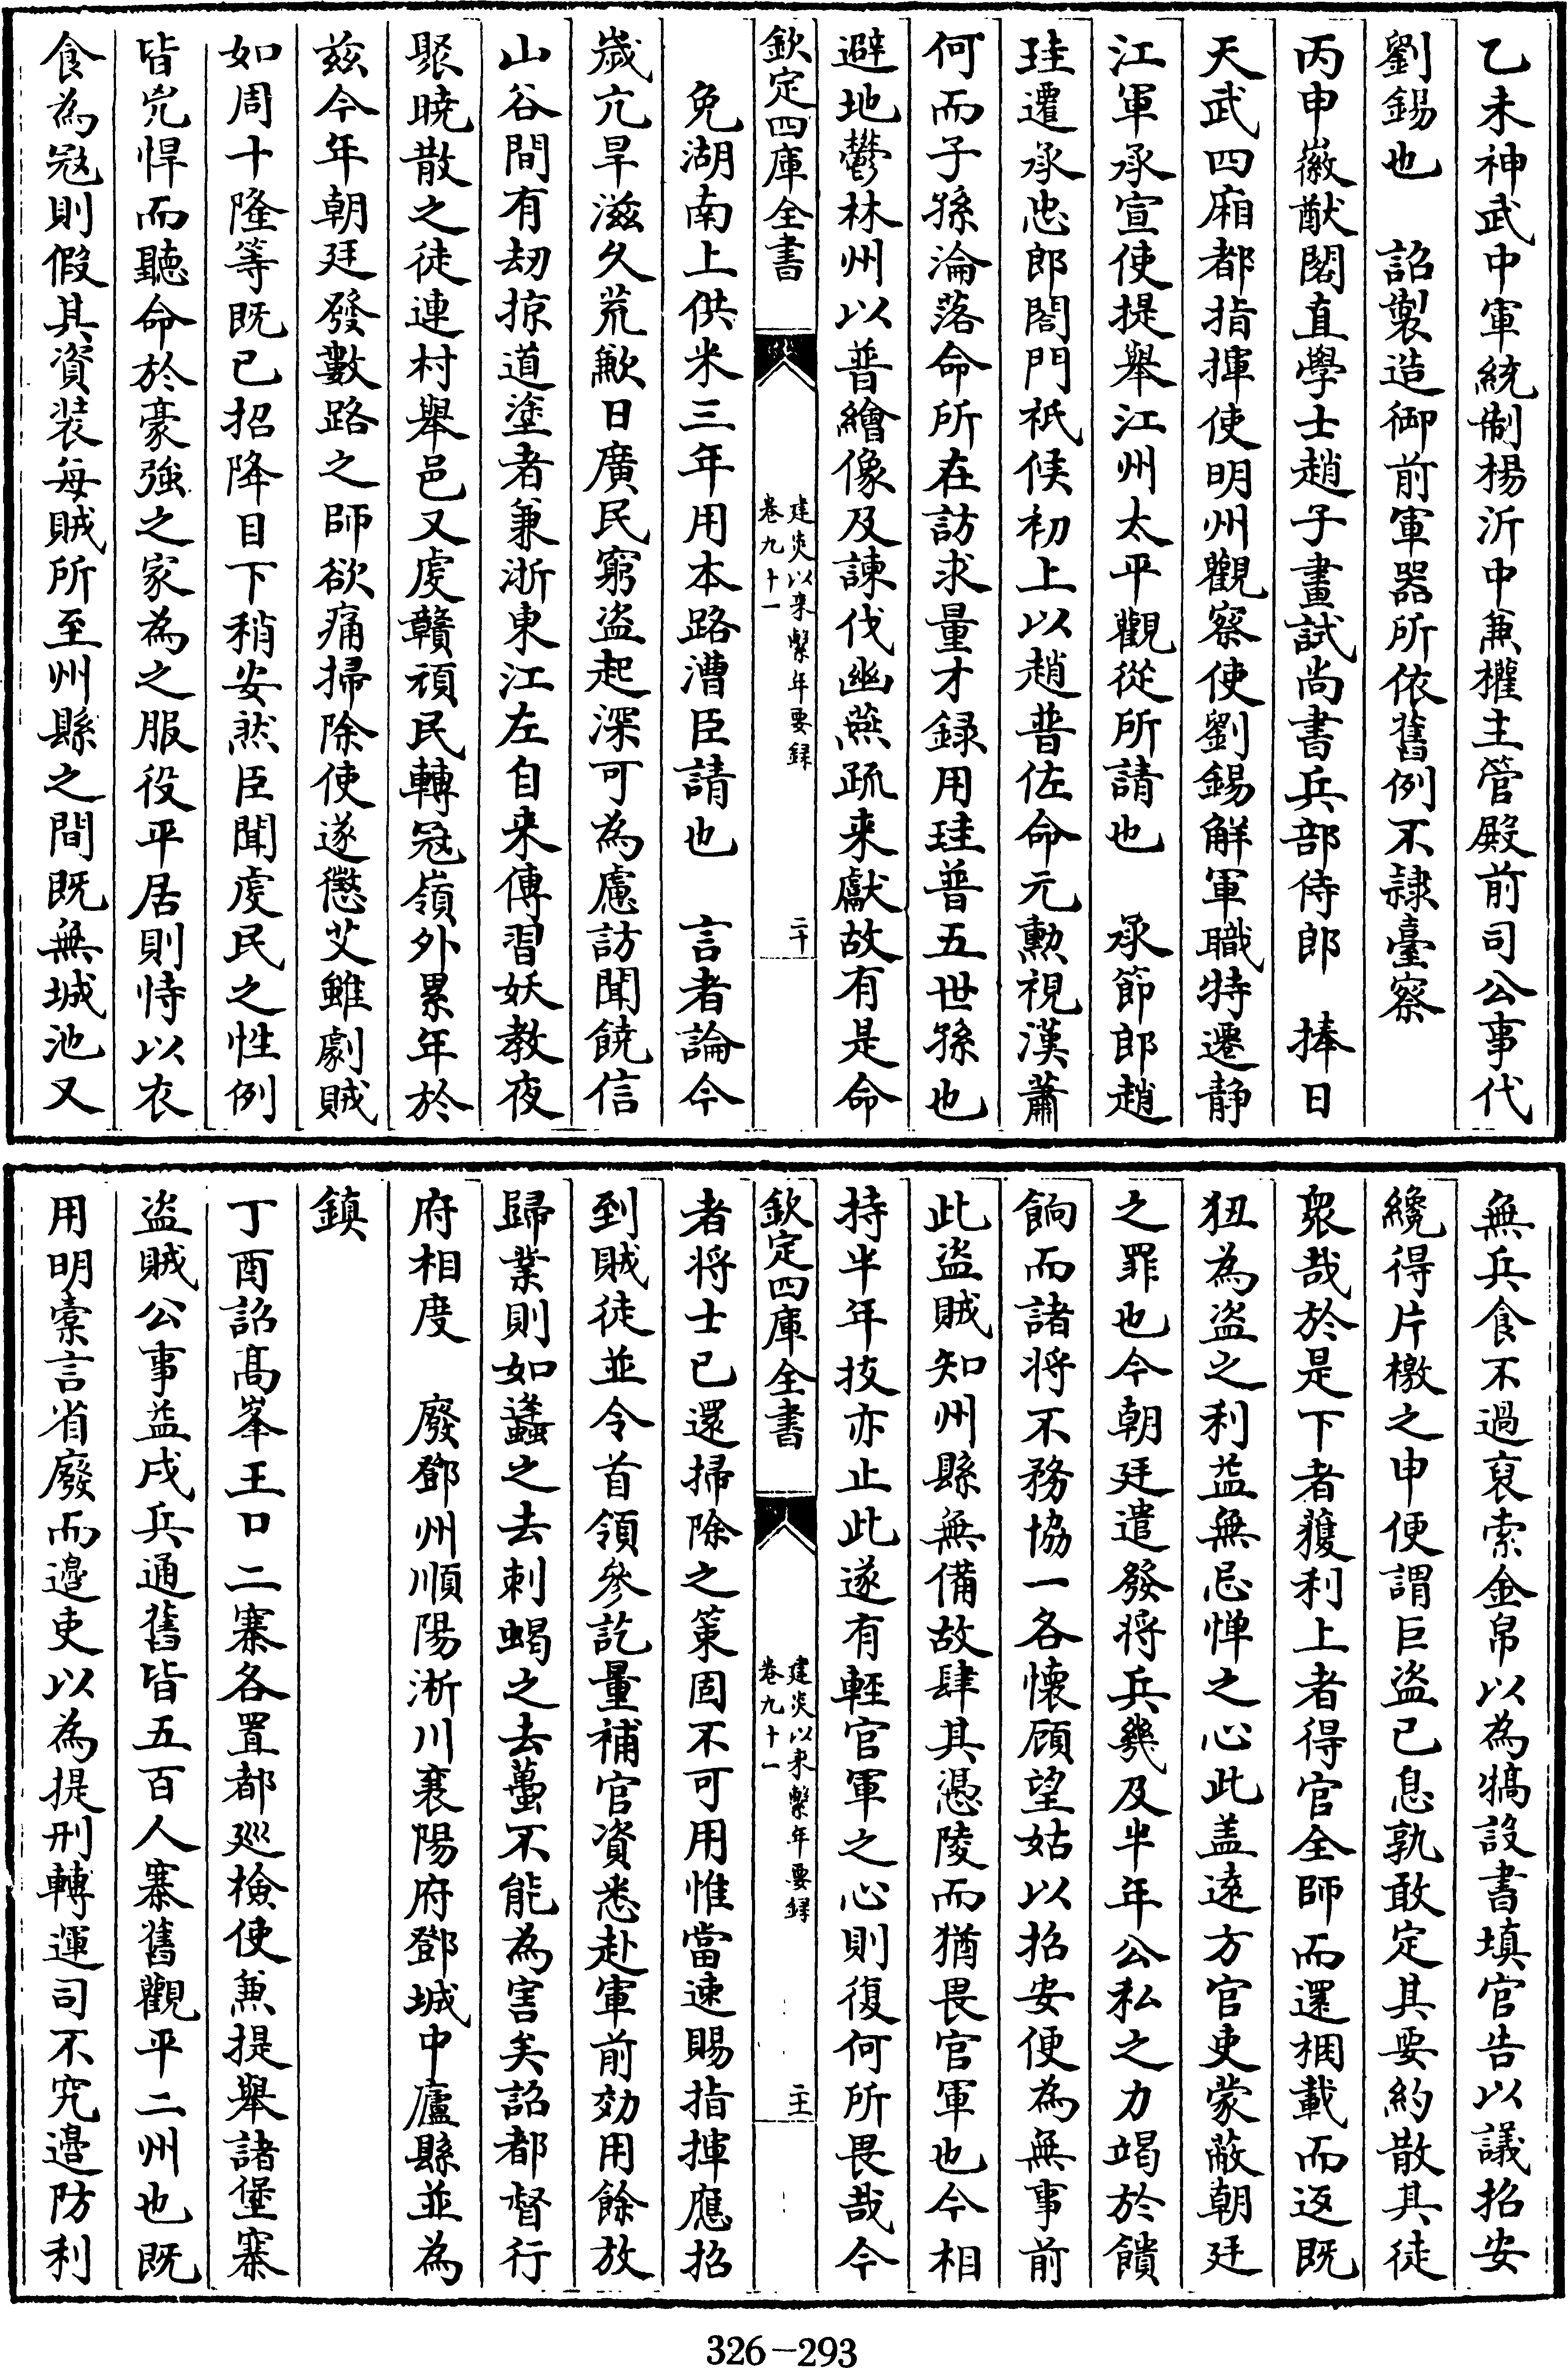 乙未神武中軍統制楊沂中兼權主管殿前司公事代
劉錫也　詔製造御前軍器所依舊例不隷臺察
丙申徽猷閣直學士趙子畫試尚書兵部侍郎　捧日
天武四廂都指揮使明州觀察使劉錫解軍職特遷静
江軍承宣使提舉江州太平觀從所請也　承節郎趙
珪遷承忠郎閤門祇候初上以趙普佐命元勲視漢蕭
何而子孫淪落命所在訪求量才録用珪普五世孫也
避地鬱林州以普繪像及諫伐幽燕疏来獻故有是命
欽定四庫全書　建炎以来繫年要録　卷九十一　二十
免湖南上供米三年用本路漕臣請也　言者論今
歲亢旱滋久荒歉日廣民窮盜起深可為慮訪聞饒信
山谷間有刼掠道塗者兼浙東江左自来傳習妖教夜
聚曉散之徒連村舉邑又虔贛頑民轉冦嶺外累年於
兹今年朝廷發數路之師欲痛掃除使遂懲艾雖劇賊
如周十隆等既已招降目下稍安然臣聞虔民之性例
皆兇悍而聽命於豪強之家為之服役平居則恃以衣
食為冦則假其資装每賊所至州縣之間既無城池又
無兵食不過裒索金帛以為犒設書填官告以議招安
纔得片檄之申便謂巨盗已息孰敢定其要約散其徒
衆哉於是下者獲利上者得官全師而還梱載而返既
狃為盜之利益無忌憚之心此盖逺方官吏蒙蔽朝廷
之罪也今朝廷遣發將兵幾及半年公私之力竭於饋
餉而諸將不務協一各懐顧望姑以招安便為無事前
此盜賊知州縣無備故肆其憑陵而猶畏官軍也今相
持半年技亦止此遂有輕官軍之心則復何所畏哉今
欽定四庫全書　建炎以来繫年要録　卷九十一　二十一
者將士已還掃除之策固不可用惟當速賜指揮應招
到賊徒並令首領參訖量補官資悉赴軍前効用餘放
歸業則如蠭之去刺蝎之去蠆不能為害矣詔都督行
府相度　廢鄧州順陽淅川襄陽府鄧城中廬縣並為
鎮
丁酉詔髙峯王口二寨各置都廵檢使兼提舉諸堡寨
盜賊公事益戍兵通舊皆五百人寨舊觀平二州也既
用明橐言省廢而邉吏以為提刑轉運司不究邉防利
326-293